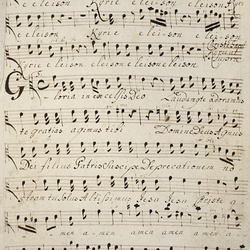 e leison Kyrie e leison e
e leison Kyrie e leison
Kyrie e leison e leison e leison
Gloria in excelsis Deo Laudamus te adoramus
te gratias agimus tibi Domine Deus Agnus
Dei filius Patris suscipe Deprecationem no
stram tu solus Altissimus Jesu Jesu Christe a
men a men amen amen a